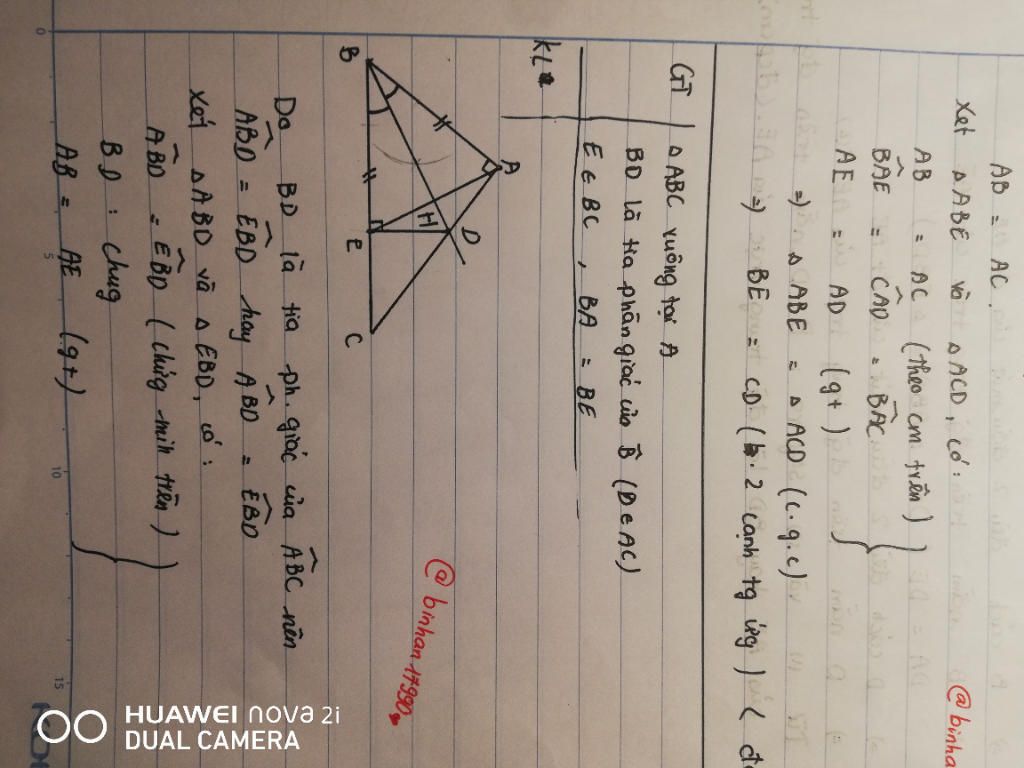 AB = AC.
@binha
Xét △ABE và △ACD, có:
AB = AC (theo cm trên)
BAE = CAD = BAC
AE = AD (gt)
=> △ABE = △ACD (c.g.c)
=> BE = CD (2 cạnh tg ứng) (đ
GT △ABC vuông tại A
BD là tia phân giác của B̂ (D ∈ AC)
E ∈ BC, BA = BE
KL
A
D
H
B
E
C
@binhan17990
Do BD là tia ph.giác của ABC nên
ABD = EBD hay ABD = EBD
Xét △ABD và △EBD, có:
ABD = EBD (chứng minh trên)
BD: chug
AB = AE (gt)
0 5 10 15
HUAWEI nova 2i
DUAL CAMERA